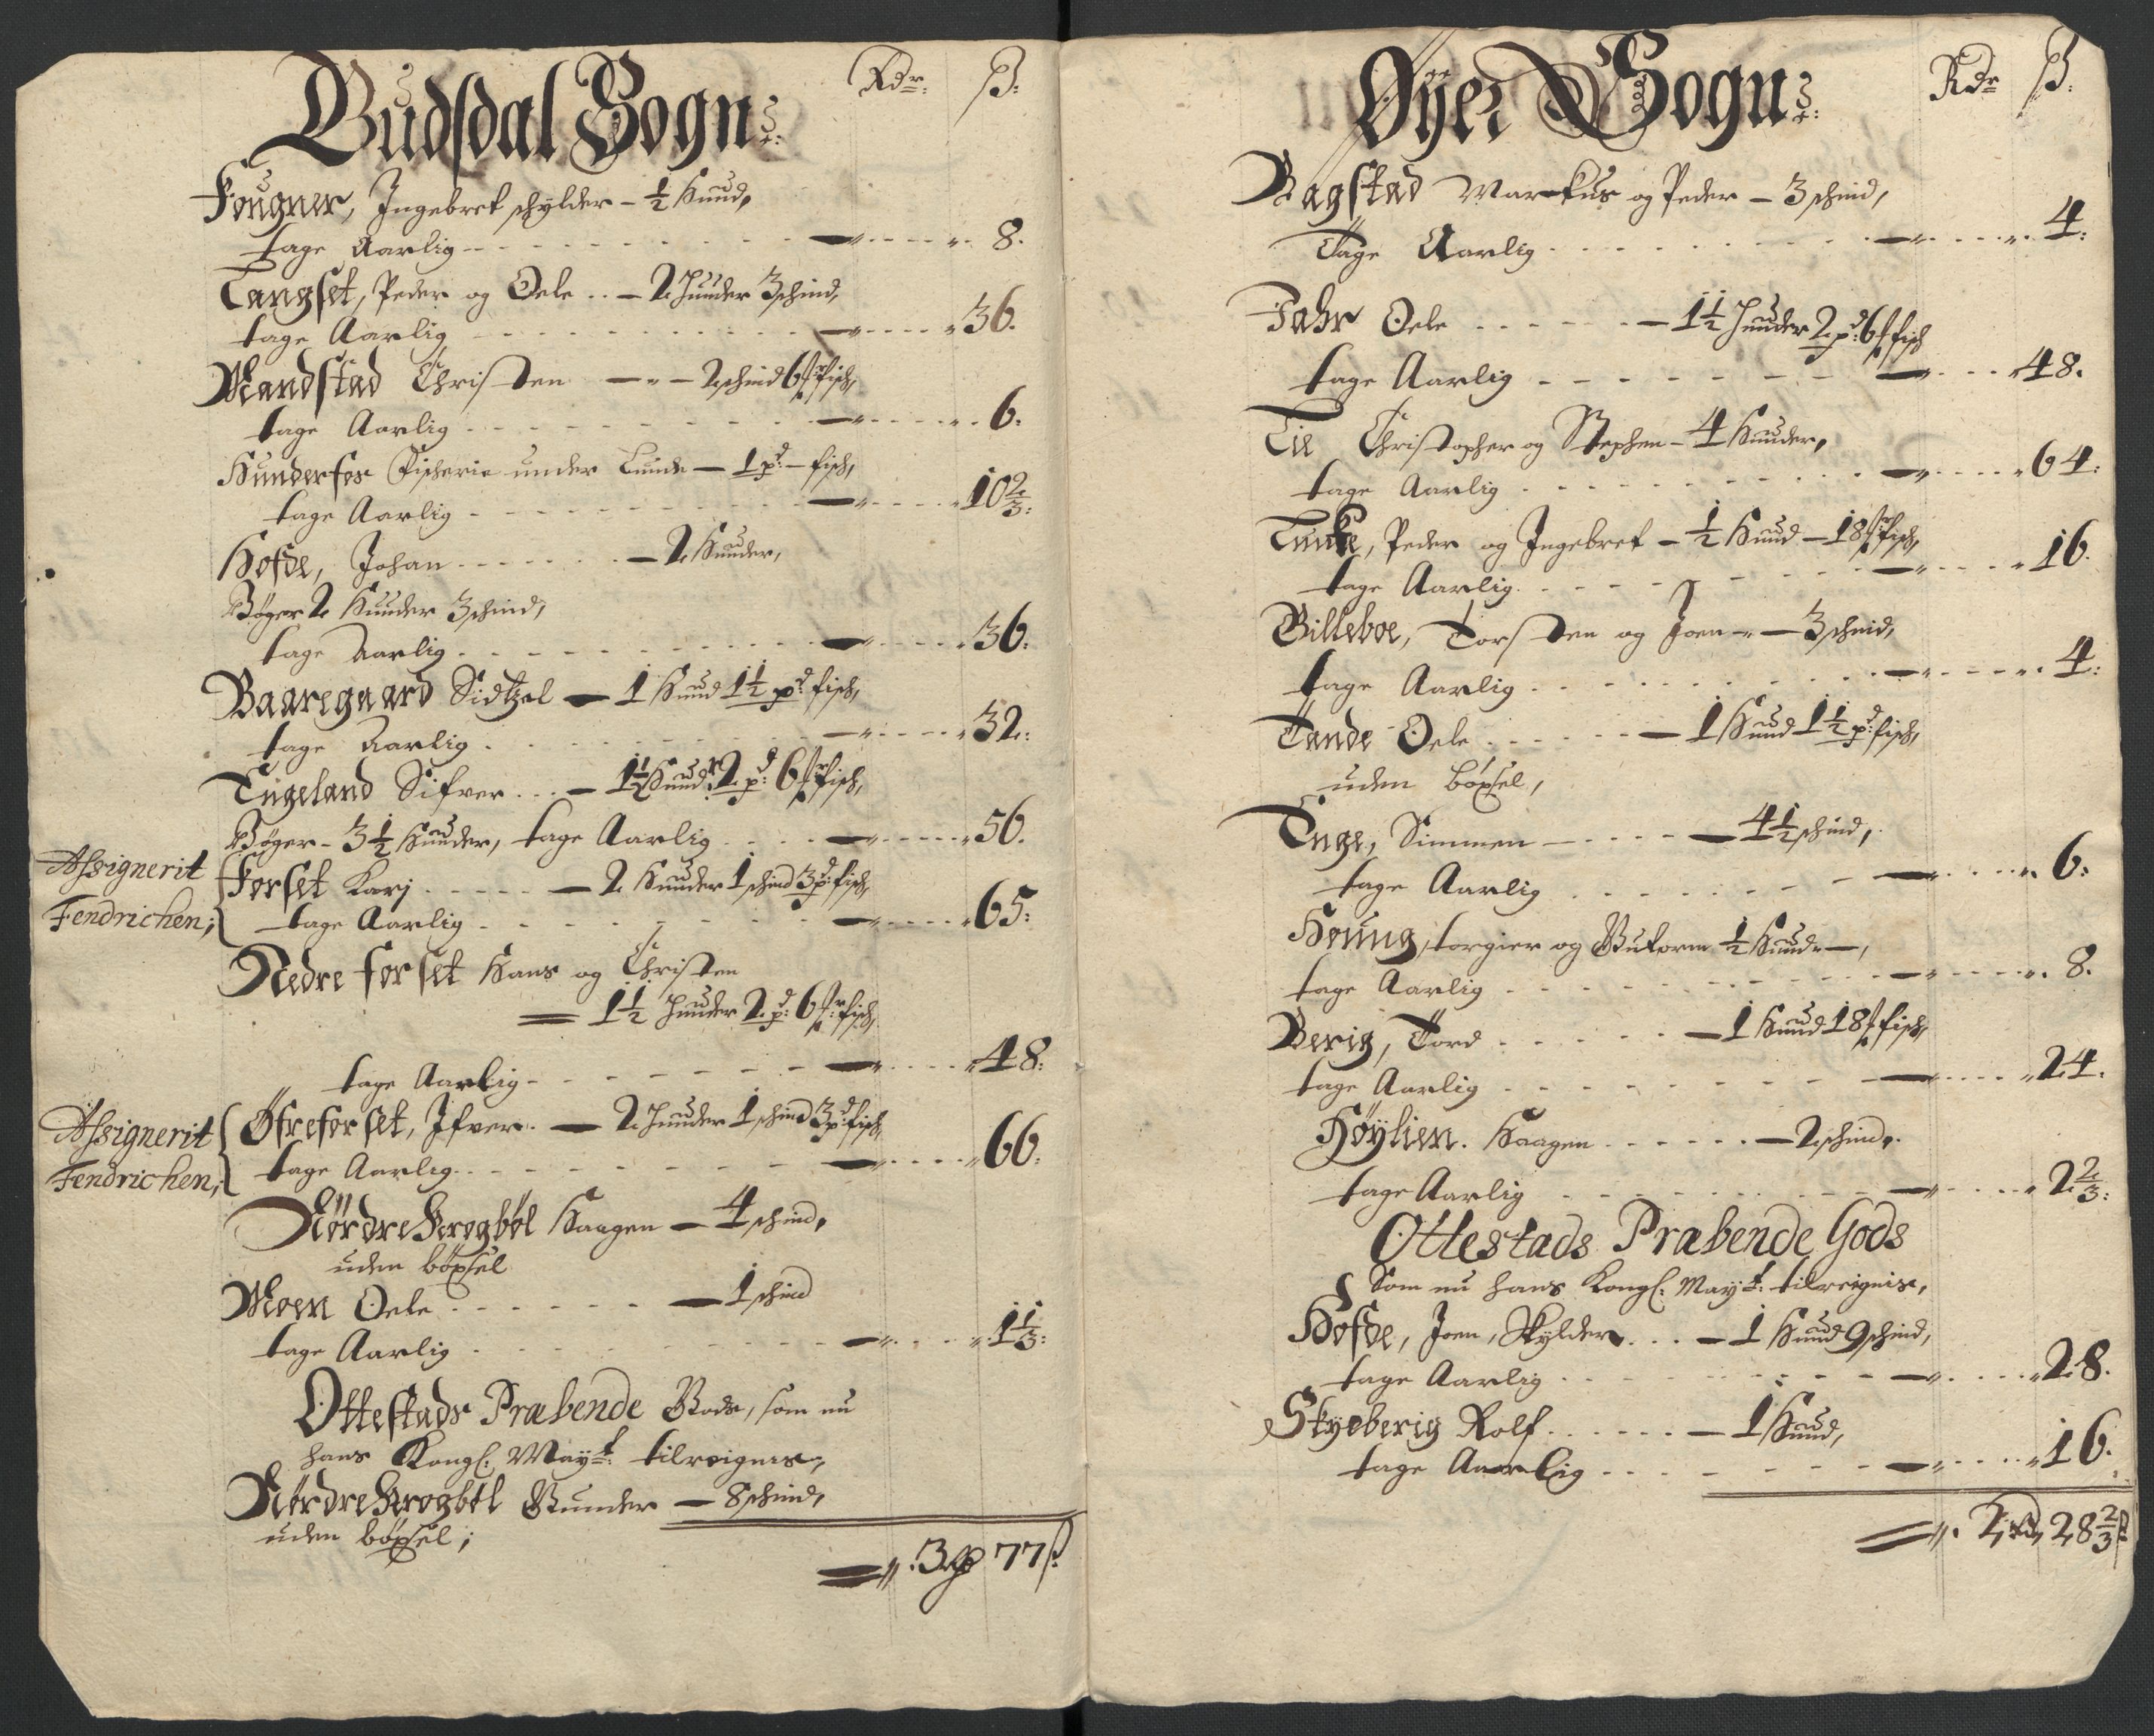 Gudsdal Sogn: Rdr: ß:
Fougner, Ingebret schylder - ½ Hund,
tage Aarlig 8.
Langset, Peder og Oele - 2 Hunder 3 schind,
tage Aarlig 36.
Mandstad Christen - 2 schind 6 fisch,
tage Aarlig 6.
Hunderfos Fischerie under Lunde - 1 pd: fisch,
tage Aarlig 10⅔:
Hofde, Johan - 2 Hunder,
Bøger 2 Hunder 3 schind,
tage Aarlig 36:
Baaregaard Sidtzel - 1 Hund 1½ pd fisch,
tage Aarlig 32:
Tugeland Sifver - 1½ Hund 2 pd: 6 fisch,
Bøger - 3½ Hunder, tage Aarlig 56.
Assignerit
Fendrichen;
Forset Karj - 2 Hunder 1 schind 3 pd: fisch,
tage Aarlig 65:
Nedre forset Hans og Christen
1½ Hunder 2 pd: 6 fisch,
tage Aarlig 48:
Assignerit
Fendrichen;
Öfreforset, Ifver - 2 Hunder 1 schind 3 pd: fisch,
tage Aarlig 66:
Nordre Krogbøl Haagen - 4 schind,
uden böxsel
Moen Oele - 1 schind
tage Aarlig 1⅓:
Ottestads Præbende Gods, som nu
hans Kongl: Mayt: tilreignes,
Nordre Krogbøl Gunder - 8 schind,
uden böxsel;
3 77 ß
Øyer Sogn: Rdr ß:
Bagstad Markus og Peder - 3 schind,
Tage Aarlig 4:
Fahr Oele - 1½ Hunder 2 pd: 6 fisch
tage Aarlig 48.
Lie Christopher og Stephen - 4 Hunder,
tage Aarlig 64:
Lunke, Peder og Ingebret - ½ Hund - 18 fisch,
tage Aarlig 16.
Billeboe, Torsten og Joen - 3 schind,
tage Aarlig 4:
Tande Oele - 1 Hund 1½ pd: fisch,
uden böxsel,
Enge, Simmen - 4½ schind,
tage Aarlig 6:
Houng, torgier og Gutorm ½ Hund -,
tage Aarlig 8.
Berig, Tord - 1 Hund 18 fisch,
tage Aarlig 24.
Høylien. Haagen - 2 schind.
tage Aarlig 2⅔:
Ottestads Præbende Gods
Som nu hans Kongl: Mayt: tilreignes,
Hofde, Joen, Skylder - 1 Hund 9 schind,
tage Aarlig 28.
Skyeberig Rolf - 1 Hund,
tage Aarlig 16.
2 rd 28⅔ ß